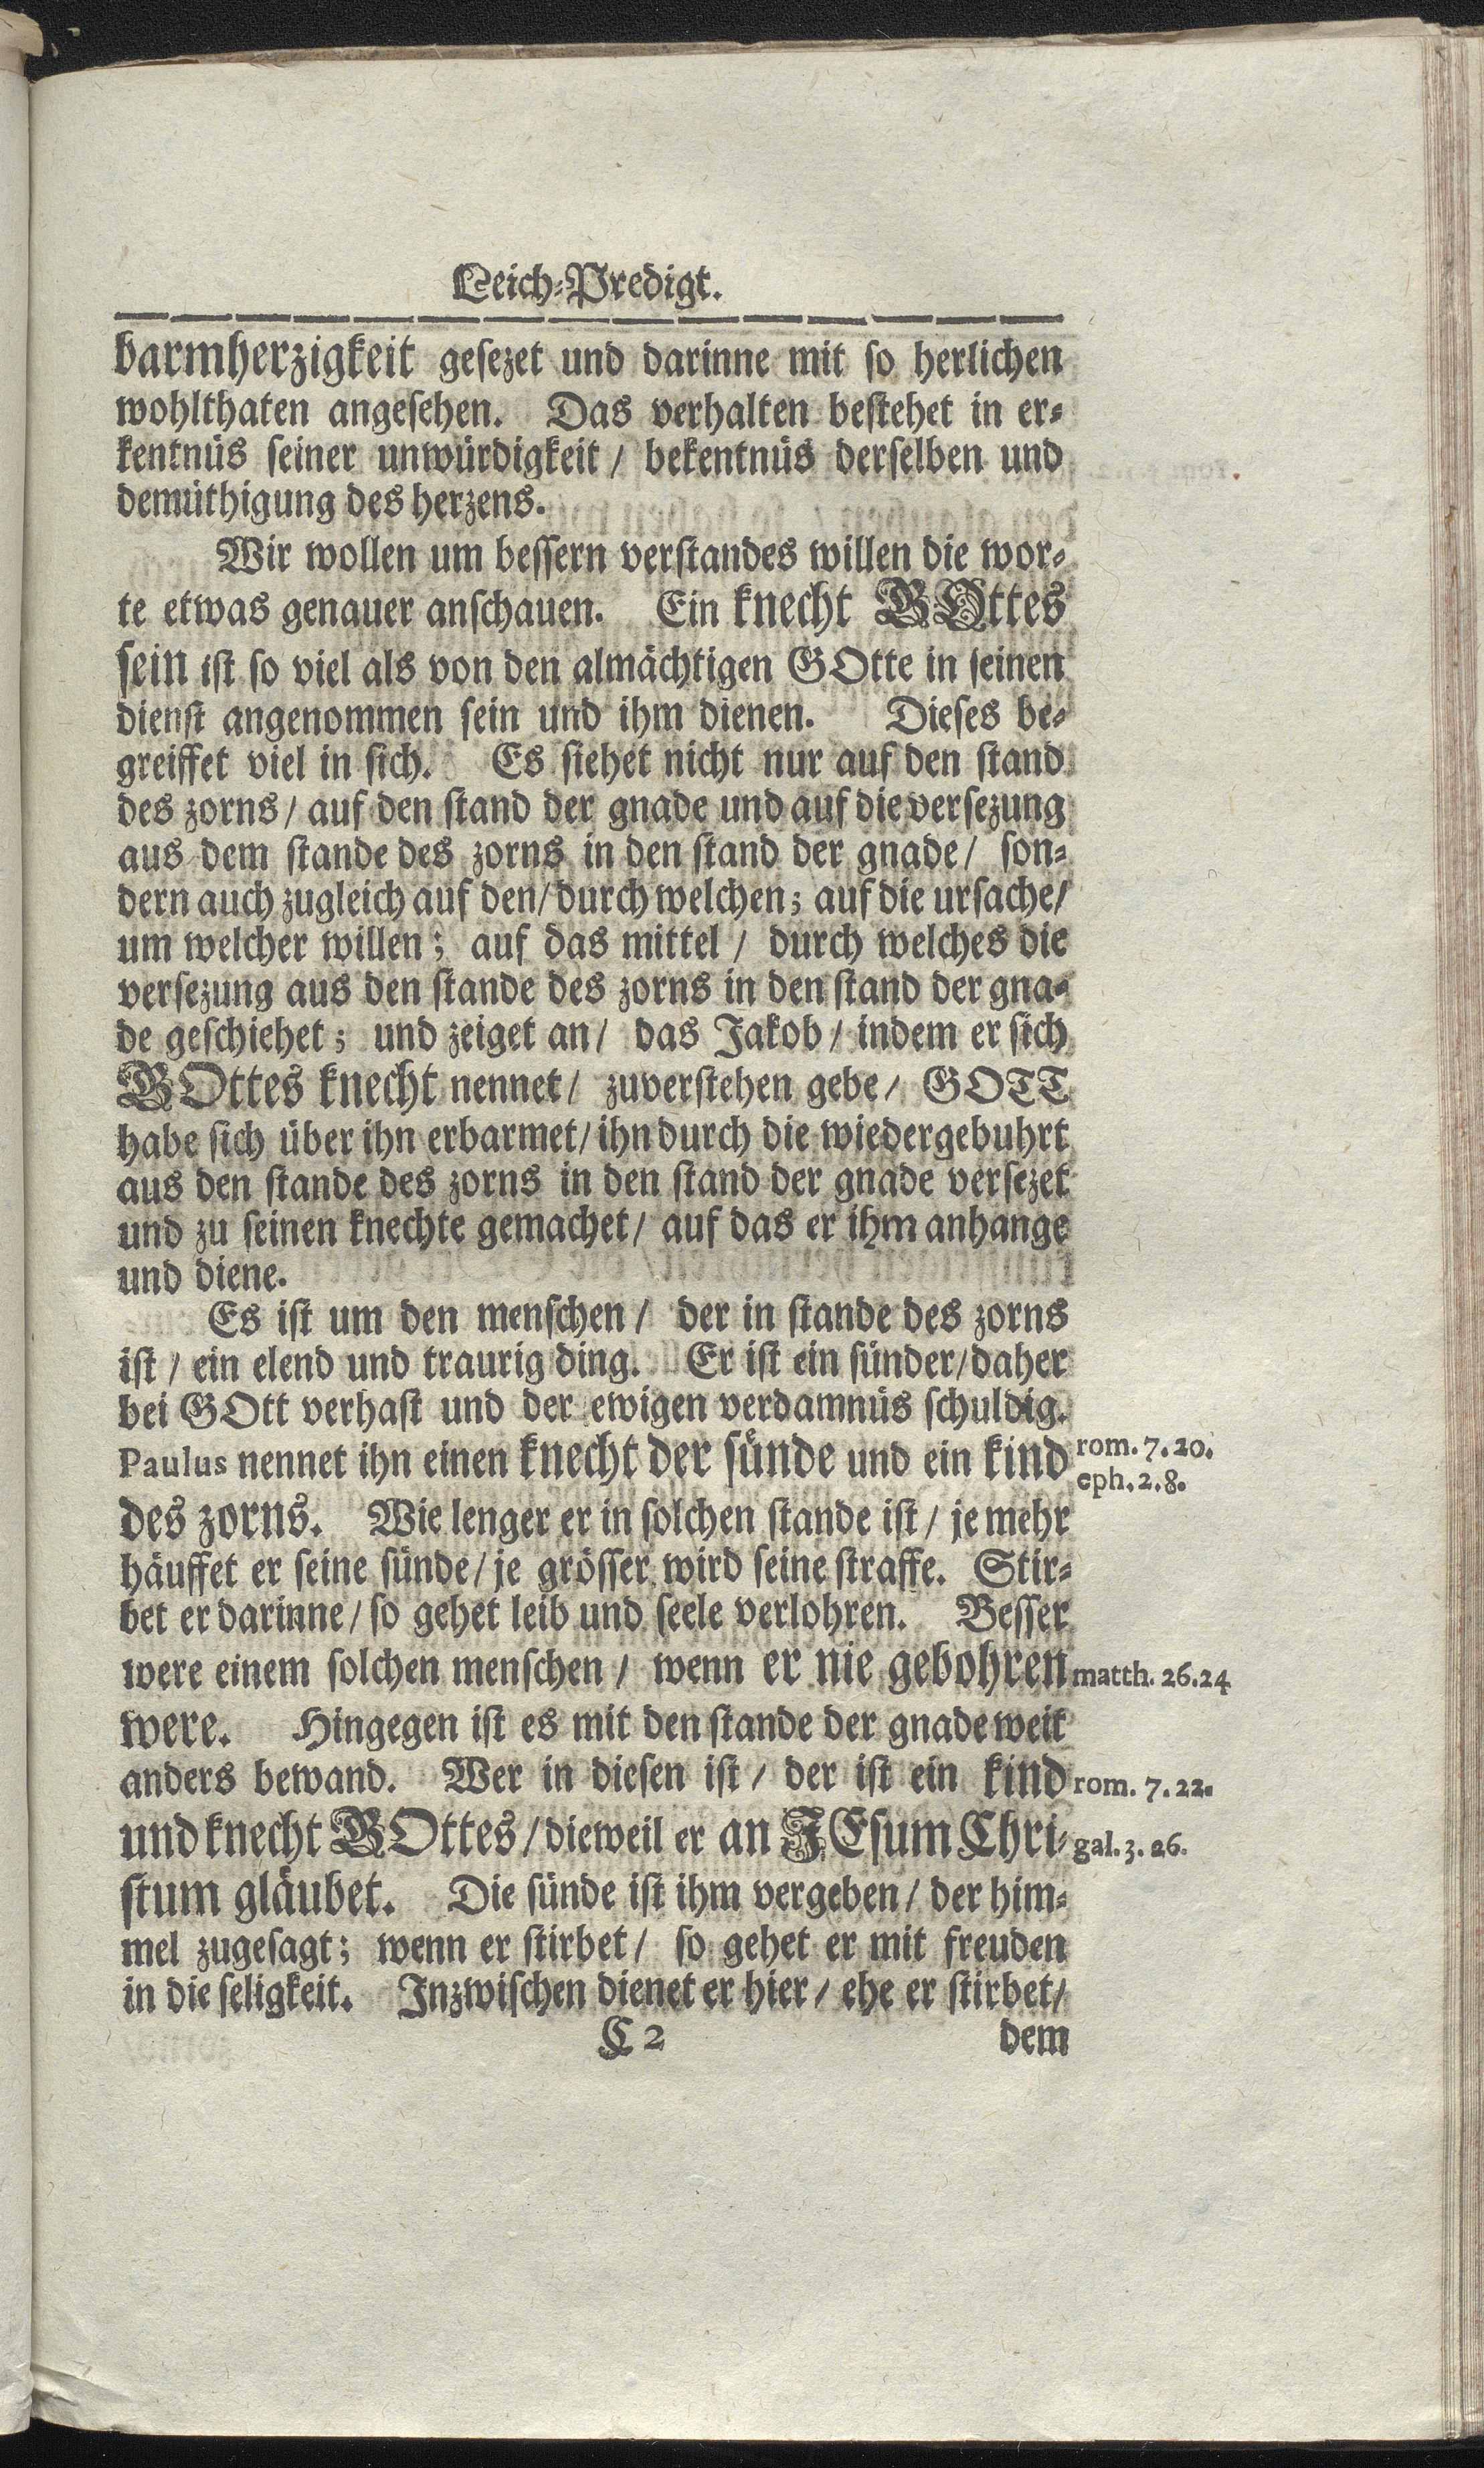 Leich-Predigt.
barmherzigkeit gesezet und darinne mit so herlichen
wohlthaten angesehen. Das verhalten bestehet in er-
kentnüs seiner unwürdigkeit / bekentnüs derselben und
demüthigung des herzens.
Wir wollen um bessern verstandes willen die wor-
te etwas genauer anschauen. Ein knecht GOttes
sein ist so viel als von den almächtigen GOtte in seinen
dienst angenommen sein und ihm dienen. Dieses be-
greiffet viel in sich. Es siehet nicht nur auf den stand
des zorns / auf den stand der gnade und auf die versezung
aus dem stande des zorns in den stand der gnade / son-
dern auch zugleich auf den / durch welchen; auf die ursache /
um welcher willen; auf das mittel / durch welches die
versezung aus den stande des zorns in den stand der gna-
de geschiehet; und zeiget an / das Jakob / indem er sich
GOttes knecht nennet / zuverstehen gebe / GOTT
habe sich über ihn erbarmet / ihn durch die wiedergebuhrt
aus den stande des zorns in den stand der gnade versezet
und zu seinen knechte gemachet / auf das er ihm anhange
und diene.
Es ist um den menschen / der in stande des zorns
ist / ein elend und traurig ding. Er ist ein sünder / daher
bei GOtt verhast und der ewigen verdamnüs schuldig.
Paulus nennet ihn einen knecht der sünde und ein kind rom. 7. 20.
eph. 2. 8.
des zorns. Wie lenger er in solchen stande ist / je mehr
häuffet er seine sünde / je grösser wird seine straffe. Stir-
bet er darinne / so gehet leib und seele verlohren. Besser
were einem solchen menschen / wenn er nie gebohren matth. 26.24
were. Hingegen ist es mit den stande der gnade weit
anders bewand. Wer in diesen ist / der ist ein kind rom. 7. 22.
und knecht GOttes / dieweil er an JEsum Chri- gal. 3. 26.
stum gläubet. Die sünde ist ihm vergeben / der him-
mel zugesagt; wenn er stirbet / so gehet er mit freuden
in die seligkeit. Inzwischen dienet er hier / ehe er stirbet /
C 2 dem